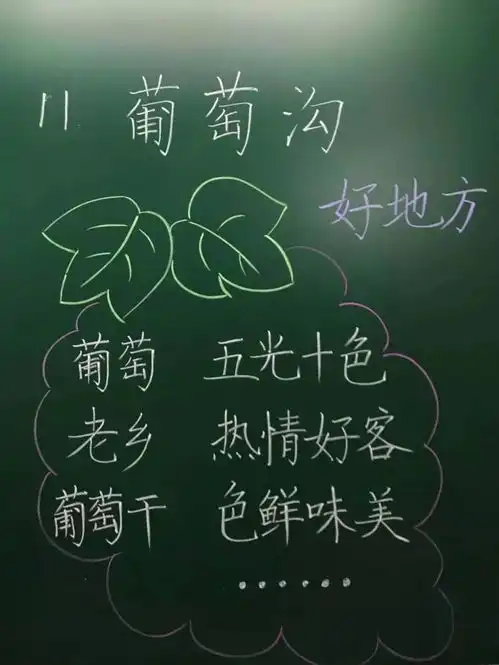 11 葡萄沟
好地方
葡萄 五光十色
老乡 热情好客
葡萄干 色鲜味美
······